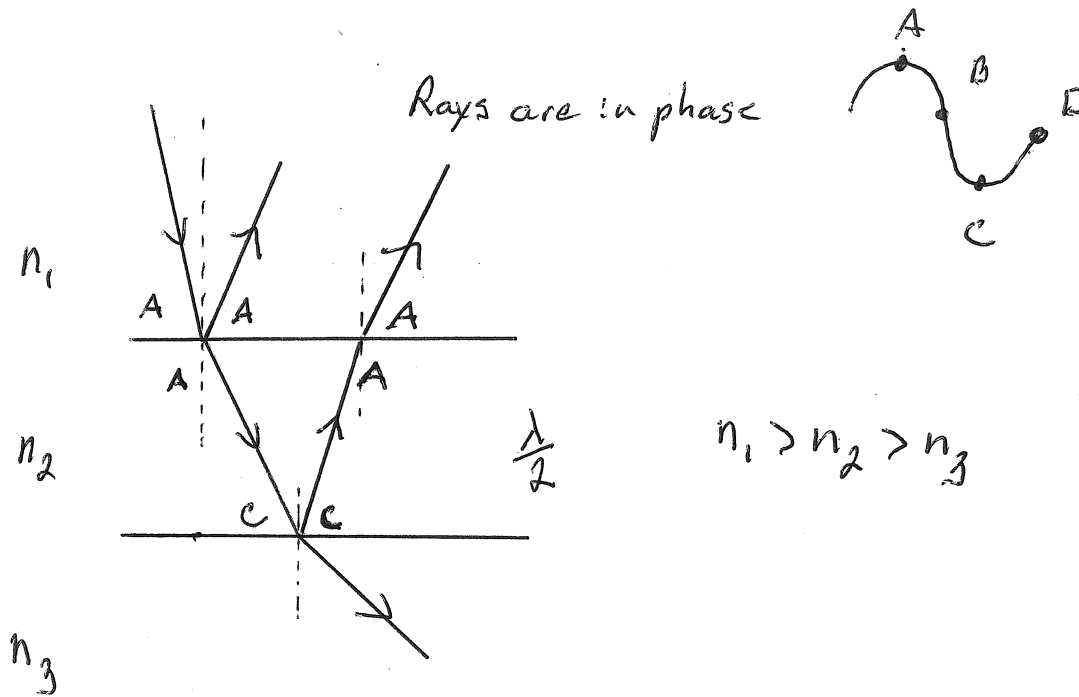 A
Rays are in phase
B
D
C
n₁
A A A
A A
n₂
λ/2
n₁ > n₂ > n₃
C C
n₃